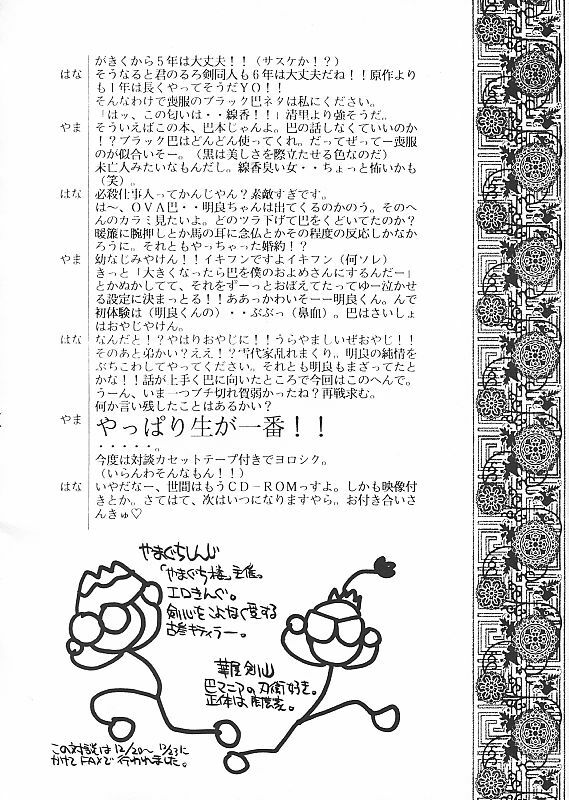 がきくから５年は大丈夫！！（サスケか！？）
はな そうなると君のるろ剣同人も６年は大丈夫だね！！原作より
も１年は長くやってそうだＹＯ！！
そんなわけで喪服のブラック巴ネタは私にください。
「はッ、この匂いは・・線香！！」清里より強そうだ。
やま そういえばこの本、巴本じゃんよ。巴の話しなくていいのか
！？ブラック巴はどんどん使ってくれ。だってぜってー喪服
のが似合いそー。（黒は美しさを際立たせる色なのだ）
未亡人みたいなもんだし。線香臭い女・・ちょっと怖いかも
（笑）。
はな 必殺仕事人ってかんじやん？素敵すぎです。
は～、ＯＶＡ巴・・明良ちゃんは出てくるのかのう。そのへ
んのカラミ見たいよ。どのツラ下げて巴をくどいてたのか？
暖簾に腕押しとか馬の耳に念仏とかその程度の反応しかなか
ろうに。それともやっちゃった婚約！？
やま 幼なじみやけん！！イキフンですよイキフン（何ソレ）
きっと「大きくなったら巴を僕のおよめさんにするんだー」
とかぬかしてて、それをずーっとおぼえてたってゆー泣かせ
る設定に決まっとる！！ああっかわいそーー明良くん。んで
初体験は（明良くんの）・・ぶぶっ（鼻血）。巴はさいしょ
はおやじやけん。
はな なんだと！？やはりおやじに！！うらやましいぜおやじ！！
そのあと弟かい？ええ！？雪代家乱れまくり。明良の純情を
ぶちこわしてやってください。それとも明良もまざってたと
かな！！話が上手く巴に向いたところで今回はこのへんで。
うーん、いま一つブチ切れ賀弱かったね？再戦求む。
何か言い残したことはあるかい？
やま やっぱり生が一番！！
・・・・・。
今度は対談カセットテープ付きでヨロシク。
（いらんわそんなもん！！）
はな いやだなー、世間はもうＣＤ－ＲＯＭっすよ。しかも映像付
きとか。さてはて、次はいつになりますやら。お付き合いさ
んきゅ♡
やまぐちしんじ
「やまぐち楼」主催。
エロきんぐ。
剣心をこよなく愛する
古参ヤティラー。
華屋剣山
巴マニアの刃衛好き。
正体は
この対談は12/20～12/23に
かけてFAXで行われました。